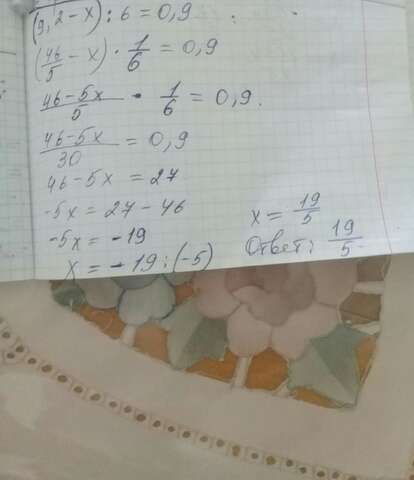 (9,2-x):6=0,9
(46/5 - x) · 1/6 = 0,9
46-5x/5 · 1/6 = 0,9.
46-5x/30 = 0,9
46-5x = 27
-5x = 27-46
-5x = -19
x = -19:(-5)
x = 19/5
Ответ: 19/5